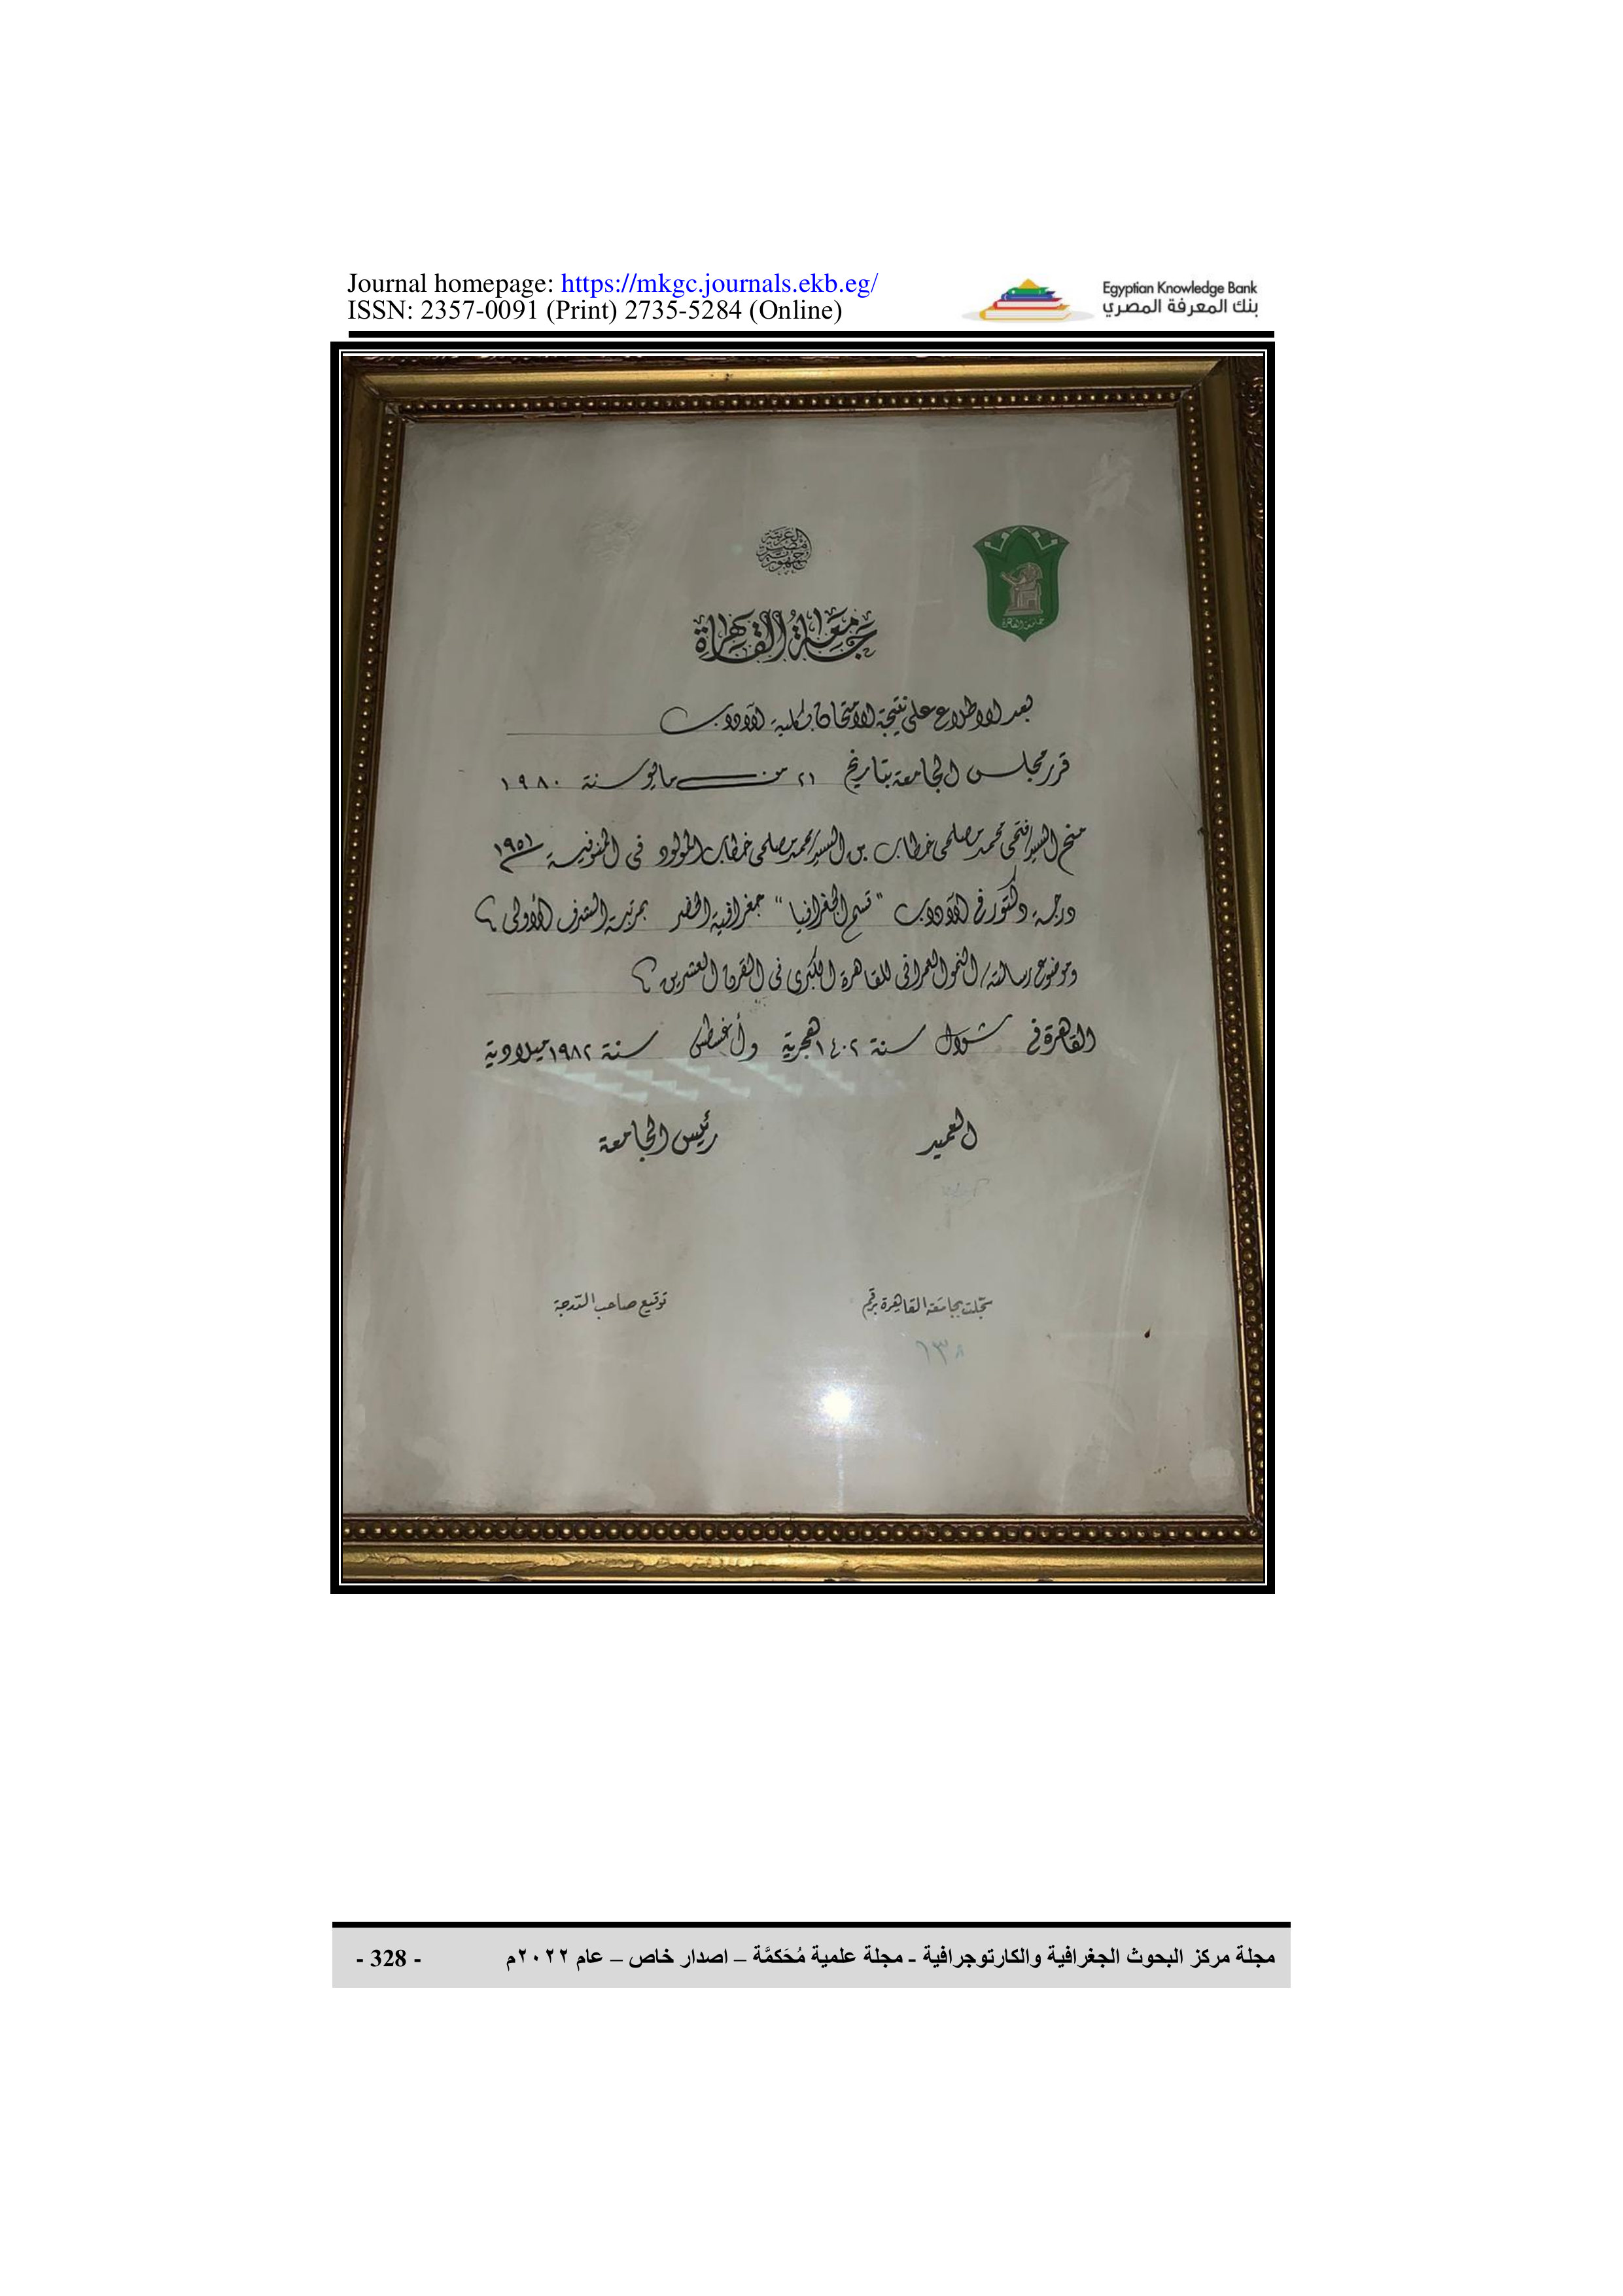 Journal homepage: https://mkgc.journals.ekb.eg/
ISSN: 2357-0091 (Print) 2735-5284 (Online)
Egyptian Knowledge Bank
بنك المعرفة المصري
جمهورية مصر العربية
جامعة القاهرة
جامعة القاهرة
بعد الاطلاع على نتيجة الامتحان بكلية الآداب
قرر مجلس الجامعة بتاريخ ٢١ من مايو سنة ١٩٨٠
منح السيد/ فتحى محمد مصلحى خطاب بن السيد/ محمد مصلحى خطاب المولود فى المنوفية ١٩٥١
درجة دكتور فى الآداب "قسم الجغرافيا" جغرافية الحضر بمرتبة الشرف الأولى
وموضوع رسالته/ النمو العمرانى للقاهرة الكبرى فى القرن العشرين
القاهرة فى شوال سنة ١٤٠٢ هجرية وأغسطس سنة ١٩٨٢ ميلادية
العميد رئيس الجامعة
سجلت بجامعة القاهرة برقم توقيع صاحب الدرجة
مجلة مركز البحوث الجغرافية والكارتوجرافية - مجلة علمية مُحَكمَّة – اصدار خاص – عام ٢٠٢٢م - 328 -